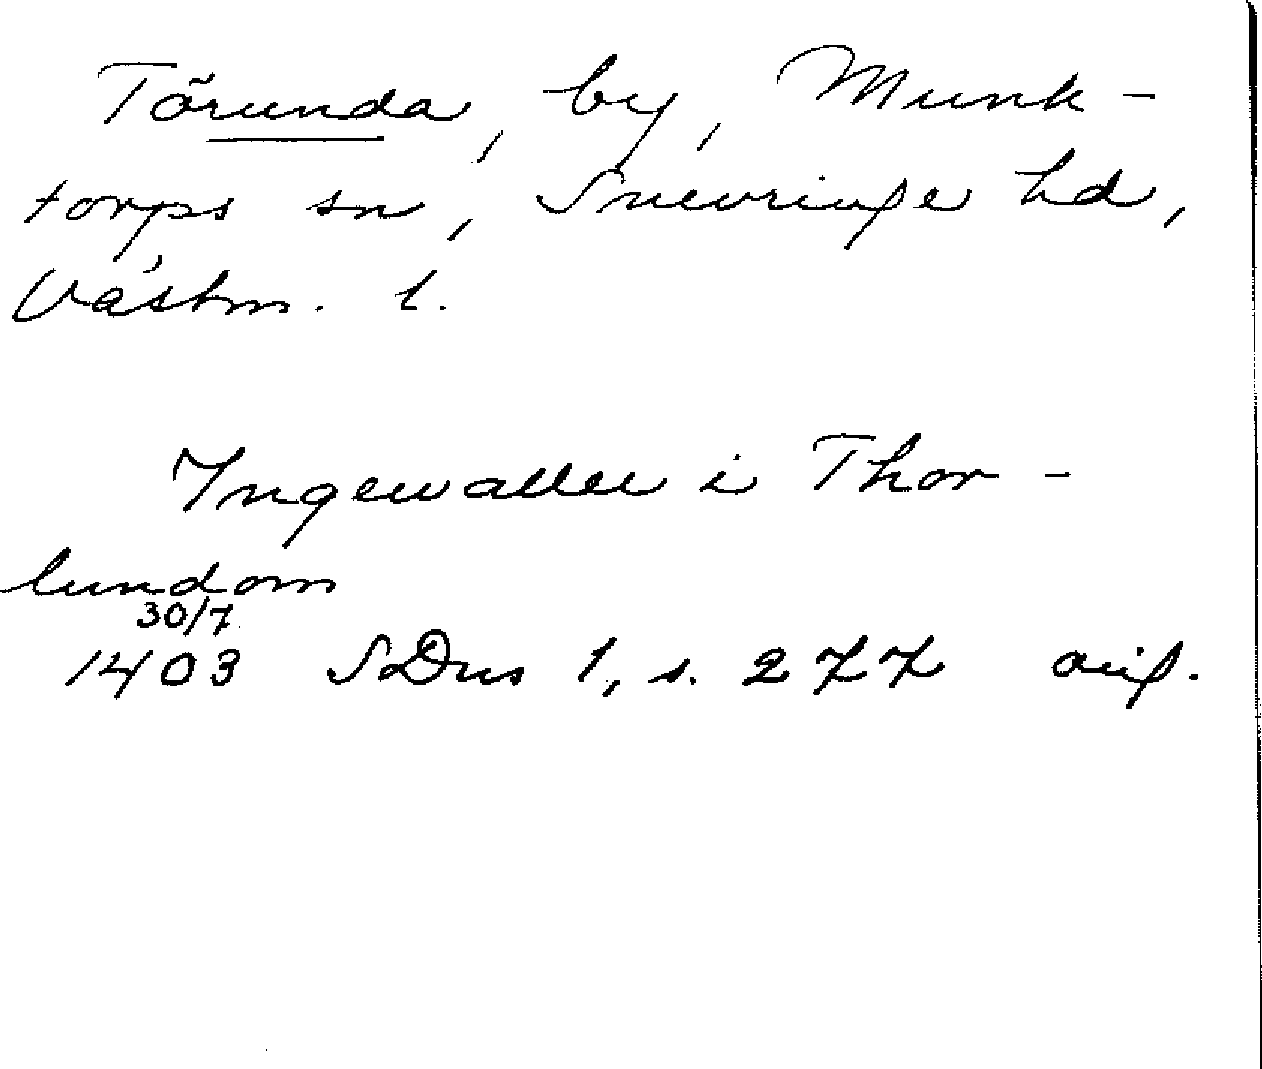 Törunda, by, Munk-
torps sn, Snevringe hd,
Västm. l.
Ingewallu i Thor-
lundom
30/7
1403 SDns 1, s. 277 orig.